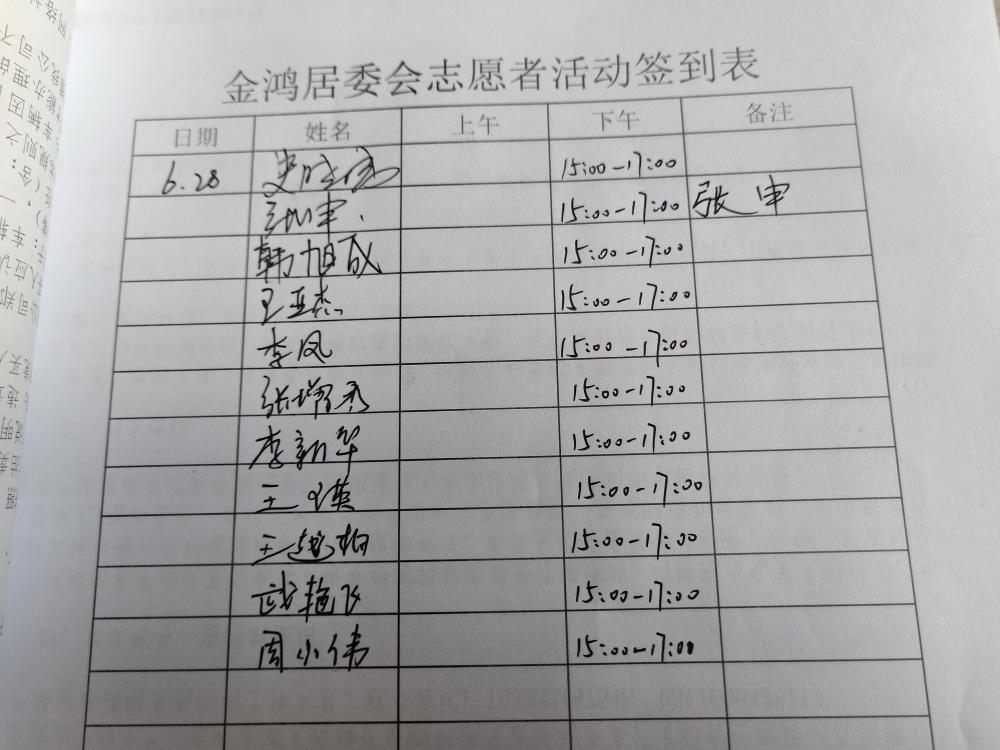 金鸿居委会志愿者活动签到表
日期 姓名 上午 下午 备注
6.28 15:00-17:00
张申 15:00-17:00 张申
韩旭成 15:00-17:00
王亚杰 15:00-17:00
李凤 15:00-17:00
张瑞秀 15:00-17:00
李新华 15:00-17:00
王瑛 15:00-17:00
王 柏 15:00-17:00
武艳飞 15:00-17:00
周小伟 15:00-17:00